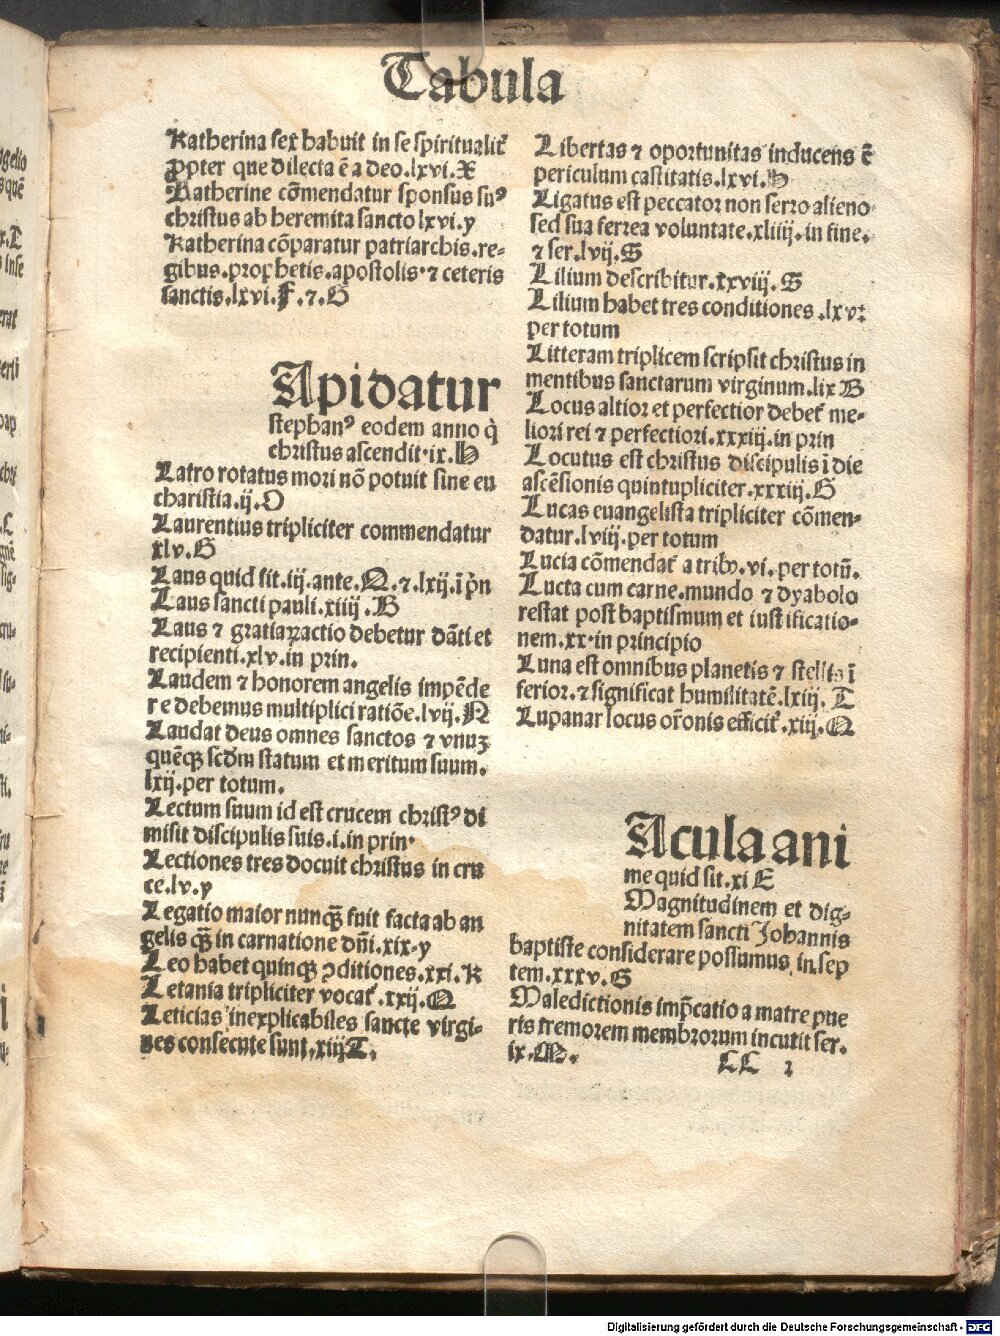 Tabula
Katherina sex habuit in se spiritualit᷑
ꝓpter que dilecta ē a deo.lxvi.X
Katherine cōmendatur sponsus suꝰ
christus ab heremita sancto lxvi.y
Katherina cōparatur patriarchis.re⸗
gibus.prophetis.apostolis.⁊ ceteris
sanctis.lxvi.F.⁊.G
Apidatur
stephanꝰ eodem anno q̇
christus ascendit.ix.H
Latro rotatus mori nō potuit sine eu
charistia.ij.O
Laurentius tripliciter commendatur
xlv.G
Laus quid sit.iij.ante.Q.⁊.lxij.ī pͥn
Laus sancti pauli.xiiij.B
Laus ⁊ gratiaꝝactio debetur dāti et
recipienti.xlv.in prin.
Laudem ⁊ honorem angelis impēde
re debemus multiplici ratiōe.lvij.N
Laudat deus omnes sanctos ⁊ vnuꝫ
quēqꝫ scd̄m statum et meritum suum.
lxij.per totum.
Lectum suum id est crucem christꝰ di
misit discipulis suis.i.in prin.
Lectiones tres docuit christus in cru
ce.lv.y
Legatio maior nunqꝫ̄ fuit facta ab an
gelis qꝫ̄ in carnatione dn̄i.xix.y
Leo habet quinqꝫ ꝯditiones.xxi.K
Letania tripliciter vocat᷑.xxij.Q
Leticias inexplicabiles sancte virgi⸗
nes consecute sunt.xiijT.
Libertas ⁊ oportunitas inducens ē
periculum castitatis.lxvi.H
Ligatus est peccator non ferro alieno
sed sua ferrea voluntate.xliiij.in fine.
⁊ ser.lvij.S
Lilium describitur.xxviij.S
Lilium habet tres conditiones.lxvi
per totum
Litteram triplicem scripsit christus in
mentibus sanctarum virginum.lix B
Locus altior et perfectior debet᷑ me⸗
liori rei ⁊ perfectiori.xxxiij.in prin
Locutus est christus discipulis ī die
ascēsionis quintupliciter.xxxiij.G
Lucas euangelista tripliciter cōmen⸗
datur.lviij.per totum
Lucia cōmendat᷑ a tribꝰ.vi.per totū.
Lucta cum carne.mundo ⁊ dyabolo
restat post baptismum et iustificatio⸗
nem.xx.in principio
Luna est omnibus planetis ⁊ stellis ī
ferior.⁊ significat humilitatē.lxiij.T
Lupanar locus or̄onis efficit᷑.xiij.Q
Acula ani
me quid sit.xi E
Magnitudinem et dig⸗
nitatem sancti Johannis
baptiste considerare possumus in sep
tem.xxxv.G
Maledictionis imp̄catio a matre pue
ris tremorem membrorum incutit ser.
ix.M.
LL 1
Digitalisierung gefördert durch die Deutsche Forschungsgemeinschaft - DFG